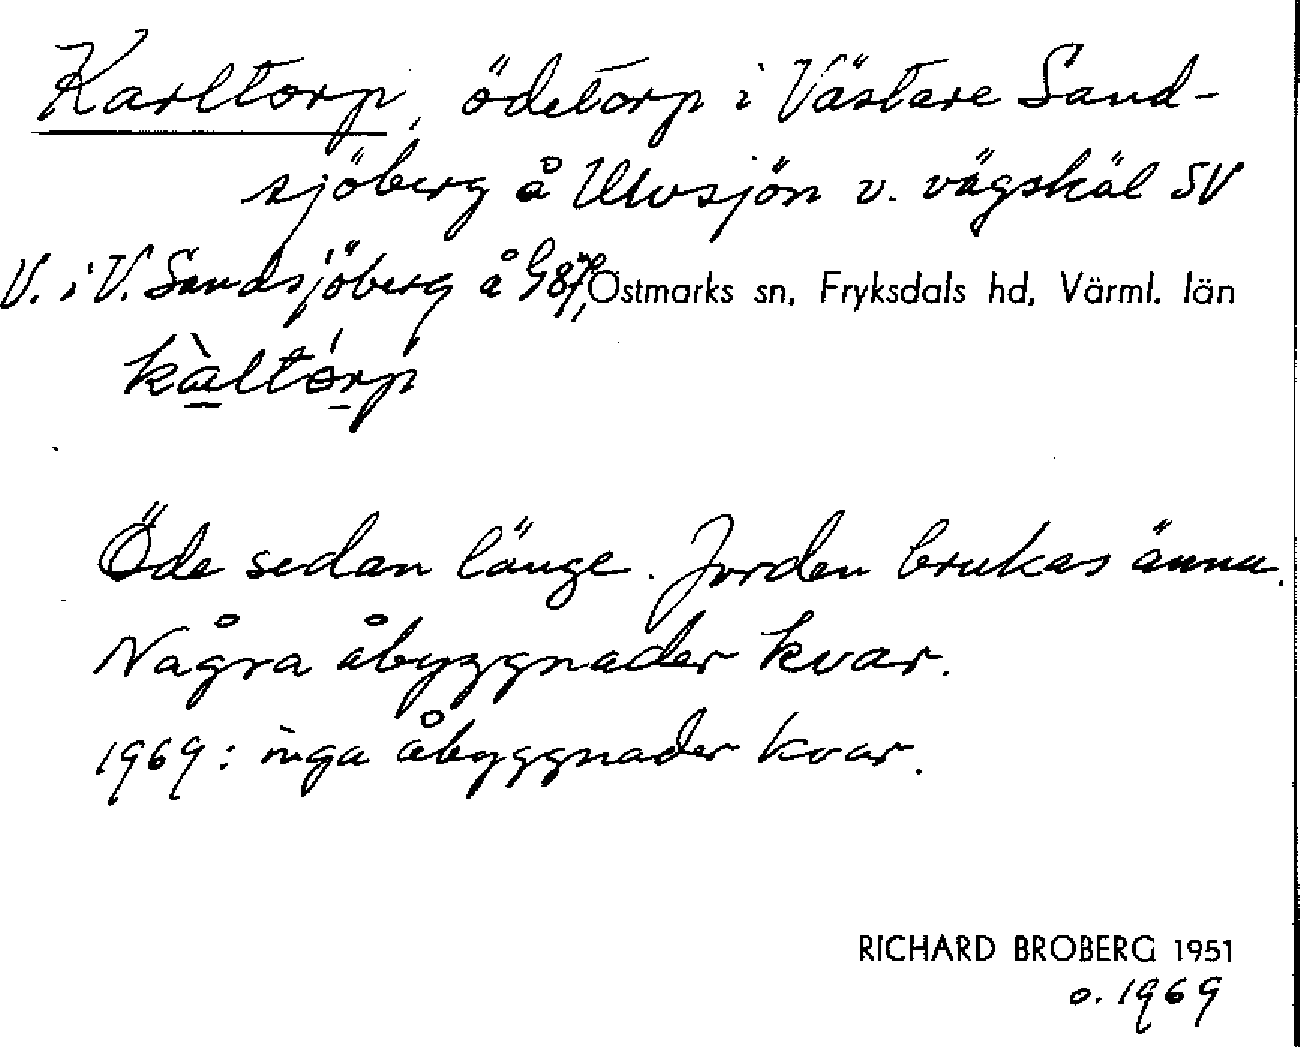 Karltorp, ödetorp i Västare Sand-
sjöberg å Ulvsjön v. vägskäl SV
V. i V. Sandsjöberg å G87, Östmarks sn, Fryksdals hd, Värml. län
kàltórp
Öde sedan länge. Jorden brukas ännu.
Några åbyggnader kvar.
1969: inga åbyggnader kvar.
RICHARD BROBERG 1951
o. 1969